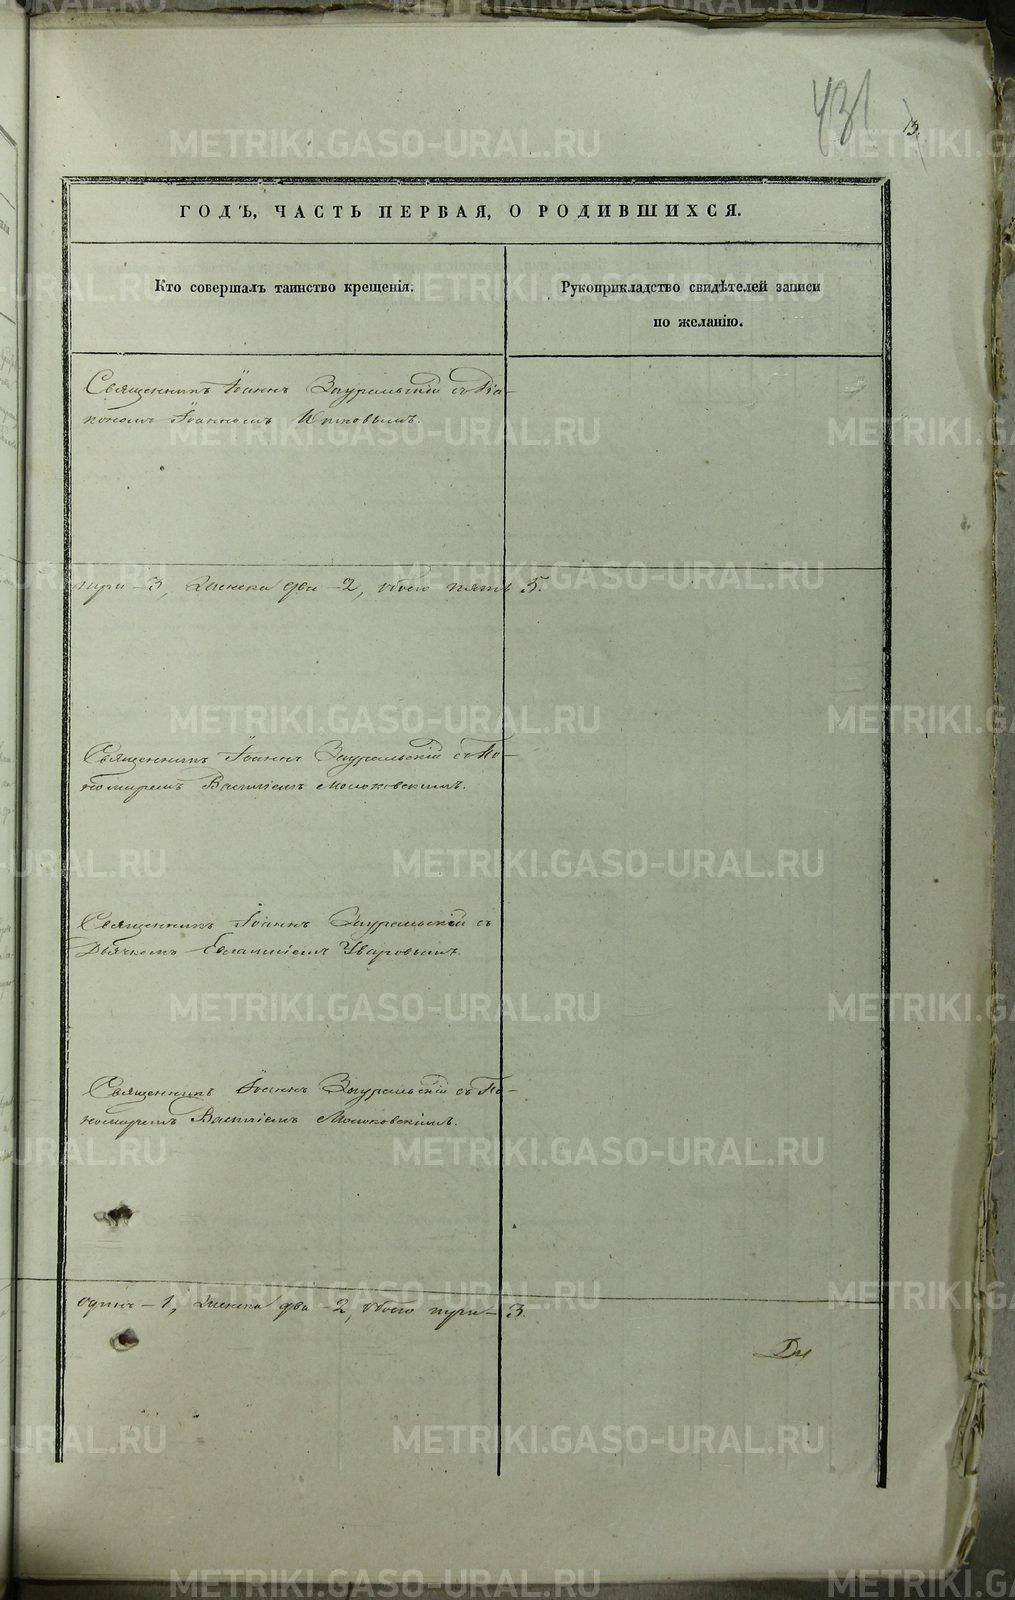 431
13.
ГОДЪ, ЧАСТЬ ПЕРВАЯ, О РОДИВШИХСЯ.
Кто совершалъ таинство крещенія.
Рукоприкладство свидѣтелей записи
по желанію.
Священникъ Іоаннъ Зауральскій съ Діа-
кономъ Іоанномъ
три - 3, Женска два - 2, обоего пять 5.
Священникъ Іоаннъ Зауральскій съ По-
номаремъ Василіемъ Молоковскимъ.
Священникъ Іоаннъ Зауральскій съ
Дьячкомъ Евлампіемъ Уваровымъ.
Священникъ Іоаннъ Зауральскій съ По-
номаремъ Василіемъ Молоковскимъ.
одинъ - 1, Женска два - 2, обоего три - 3.
METRIKI.GASO-URAL.RU